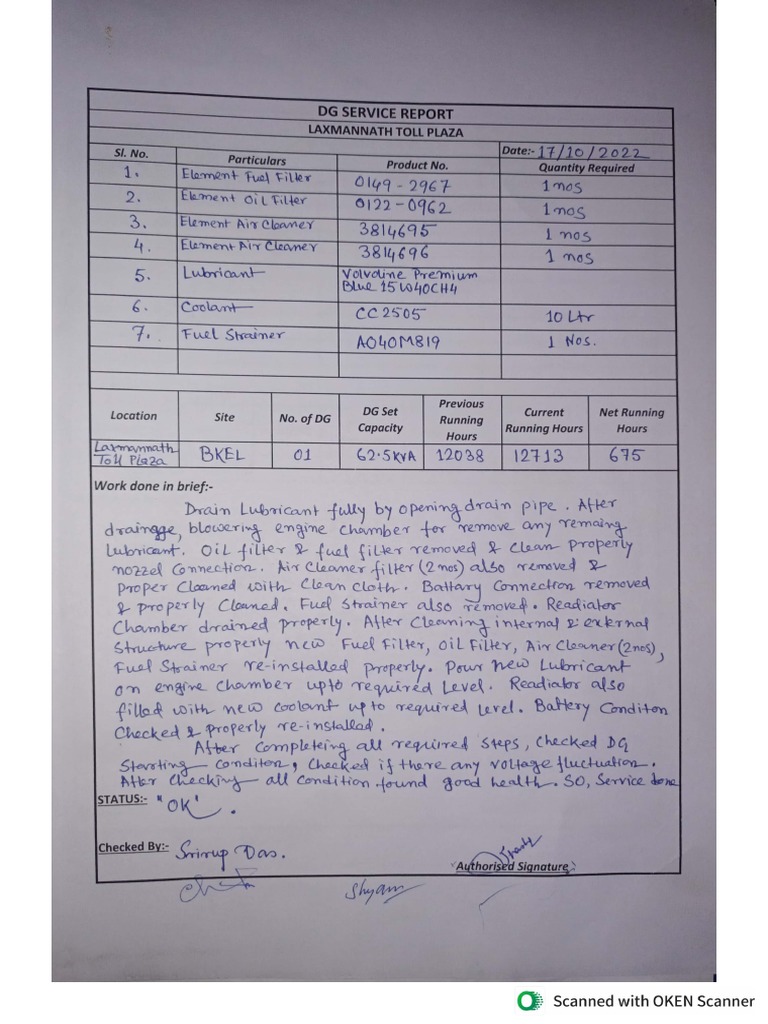 DG SERVICE REPORT
LAXMANNATH TOLL PLAZA
Date:- 17/10/2022
Sl. No. Particulars Product No. Quantity Required
1. Element Fuel Filter 0149-2967 1 nos
2. Element Oil Filter 0122-0962 1 nos
3. Element Air Cleaner 3814695 1 nos
4. Element Air Cleaner 3814696 1 nos
5. Lubricant Volvoline Premium
Blue 15W40CH4
6. Coolant CC2505 10 Ltr
7. Fuel Strainer A040M819 1 Nos.
Location Site No. of DG DG Set Capacity Previous Running Hours Current Running Hours Net Running Hours
Laxmannath Toll Plaza BKEL 01 62.5KVA 12038 12713 675
Work done in brief:-
Drain Lubricant fully by opening drain pipe. After
drainage, blowering engine chamber for remove any remaing
lubricant. Oil filter & fuel filter removed & clean properly
nozzel Connection. Air Cleaner filter (2nos) also removed &
proper Cleaned with Clean Cloth. Battary Connection removed
& properly Cleaned. Fuel Strainer also removed. Readiator
Chamber drained properly. After Cleaning internal & external
Structure properly new Fuel Filter, Oil Filter, Air Cleaner (2nos),
Fuel Strainer re-installed properly. Pour New Lubricant
on engine Chamber upto required Level. Readiator also
filled with new coolant up to required Level. Battery Conditon
Checked & properly re-installed.
After Completeing all required Steps, Checked DG
Starting Conditon, Checked if there any voltage fluctuation.
After checking all condition found good health. SO, Service done
STATUS:- "OK".
Checked By:- Srirup Das.
Authorised Signature
Shyam
Scanned with OKEN Scanner